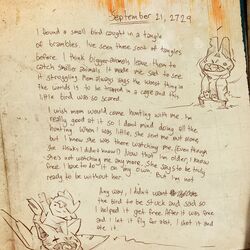 September 21, 2729
I found a small bird caught in a tangle
of brambles. I've seen these sort of tangles
before. I think bigger animals leave them to
catch smaller animals. It made me sad to see
it struggling. Mom always says the worst thing in
the worlds is to be trapped in a cage and this
little bird was so scared.
I wish mom would come hunting with me. I'm
really good at it so I dont mind doing all the
hunting. When I was little, she sent me out alone
but I knew she was there watching me. (Even though
she thinks I didn't know!) Now that I'm older, I know
she's not watching me any more. She says to be truly
free I have to do it on my own. But I'm not
ready to be without her.
Any way, I didn't want
the bird to be stuck and sad so
I helped it get free. After it was free
and I let it fly for a bit, I shot it
and ate it.